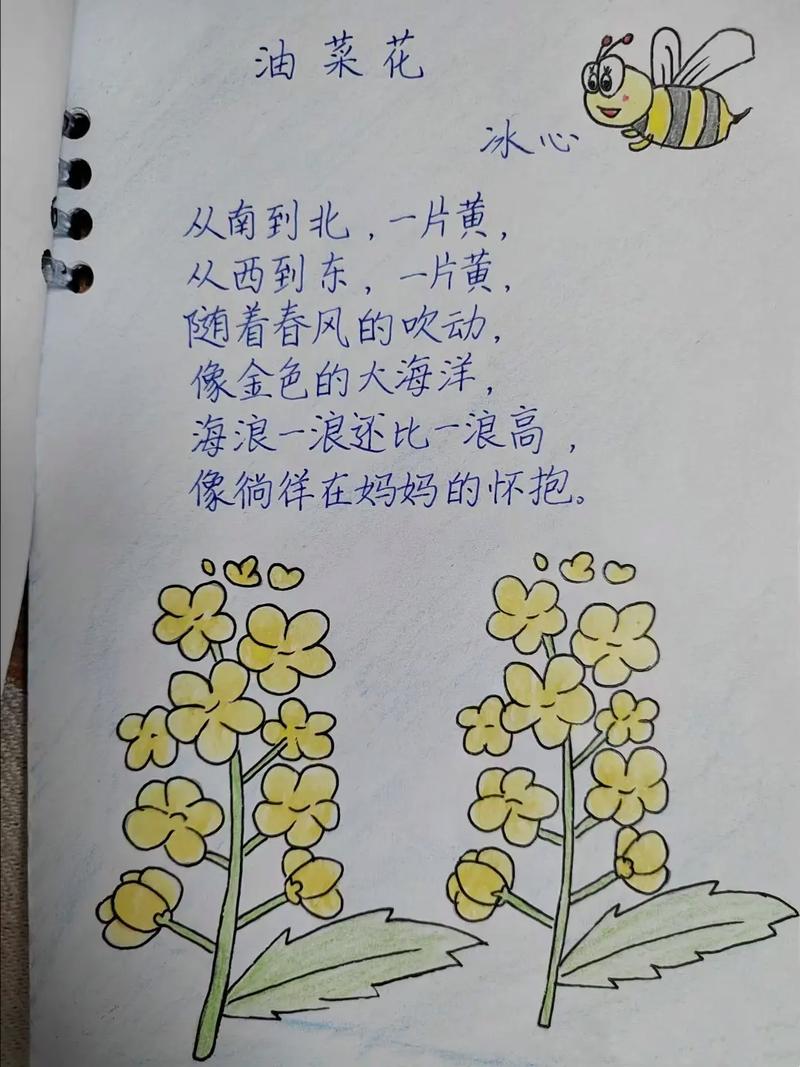 油菜花
冰心
从南到北，一片黄，
从西到东，一片黄，
随着春风的吹动，
像金色的大海洋，
海浪一浪还比一浪高，
像徜徉在妈妈的怀抱。